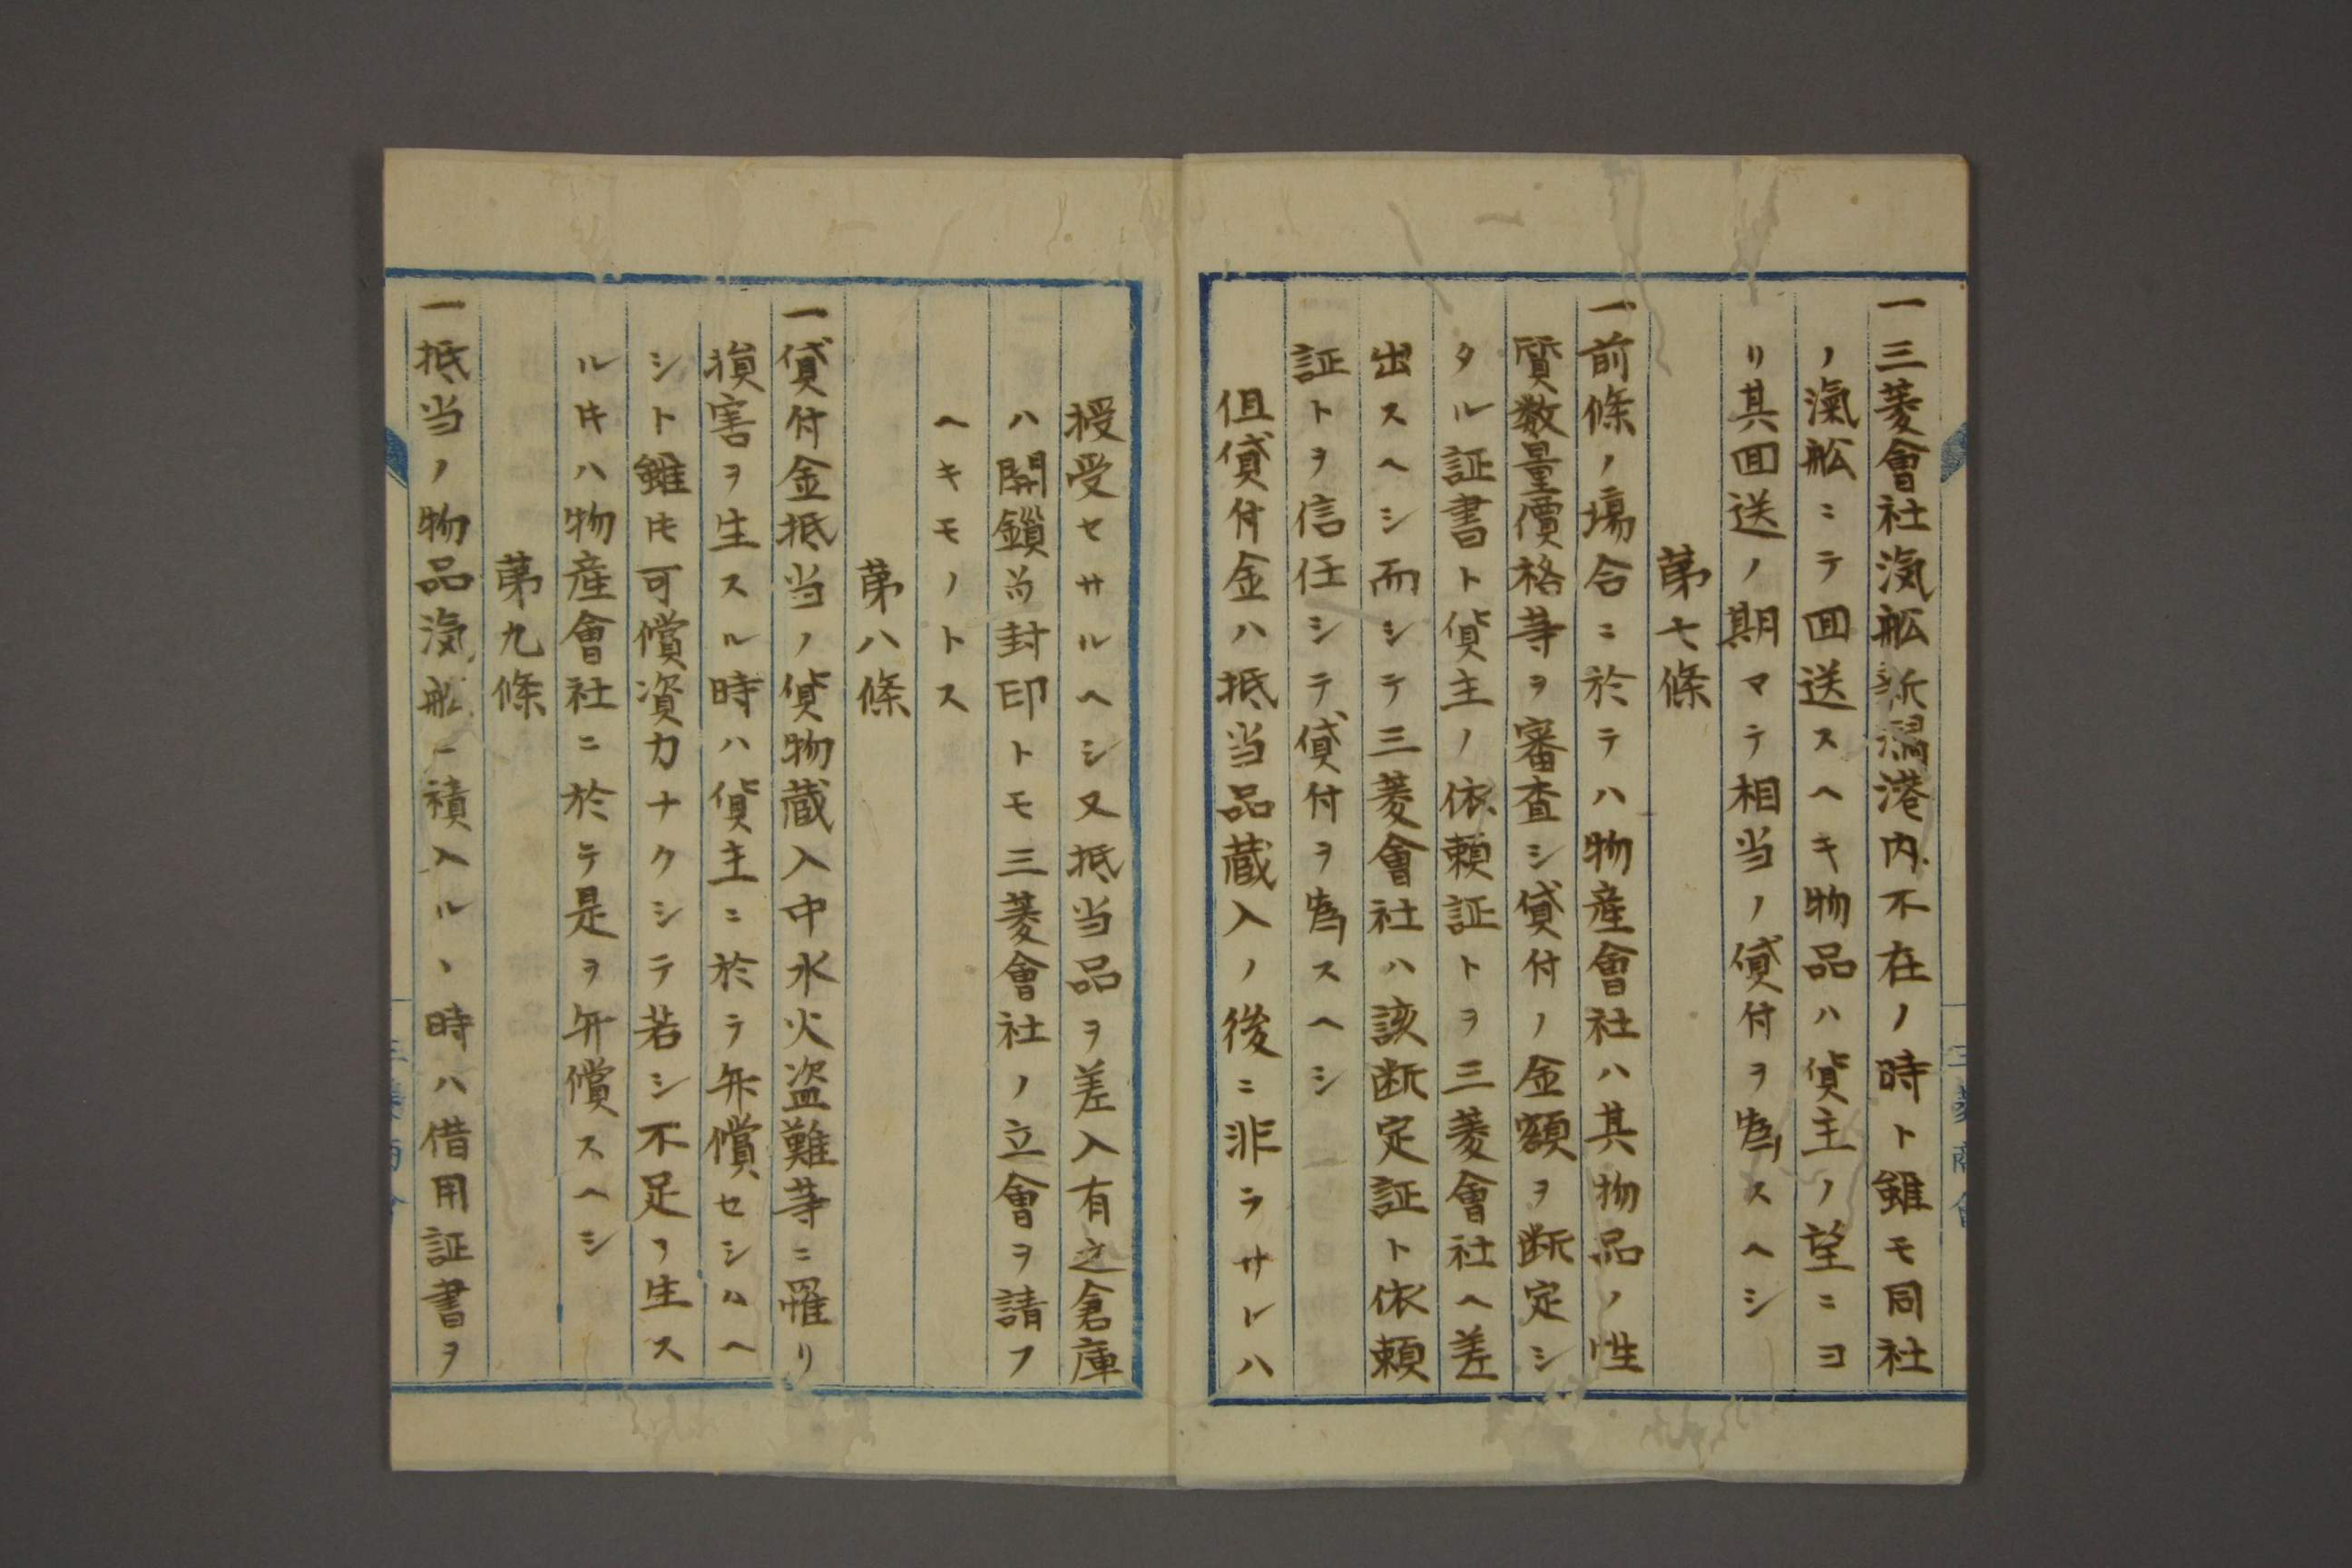 一三菱會社滊舩新潟港内不在ノ時ト雖モ同社
ノ滊舩ニテ回送スヘキ物品ハ貨主ノ望ニヨ
リ其回送ノ期マテ相当ノ貸付ヲ為スヘシ
第七條
一前條ノ塲合ニ於テハ物産會社ハ其物品ノ性
質数量價格等ヲ審査シ貸付ノ金額ヲ断定シ
タル証書ト貨主ノ依頼証トヲ三菱會社ヘ差
出スヘシ而シテ三菱會社ハ該断定証ト依頼
証トヲ信任シテ貸付ヲ為スヘシ
但貸付金ハ抵当品蔵入ノ後ニ非ラサレハ
授受セサルヘシ又抵当品ヲ差入有之倉庫
ハ開鎖并封印トモ三菱會社ノ立會ヲ請フ
ヘキモノトス
第八條
一貸付金抵当ノ貨物蔵入中水火盗難等ニ罹リ
損害ヲ生スル時ハ貨主ニ於テ弁償セシハヘ
シト雖𪜈可償資力ナクシテ若シ不足ヲ生ス
ル𪜈ハ物産會社ニ於テ是ヲ弁償スヘシ
第九條
一抵当ノ物品滊舩ニ積入ルヽ時ハ借用証書ヲ
三菱商會
三菱商會